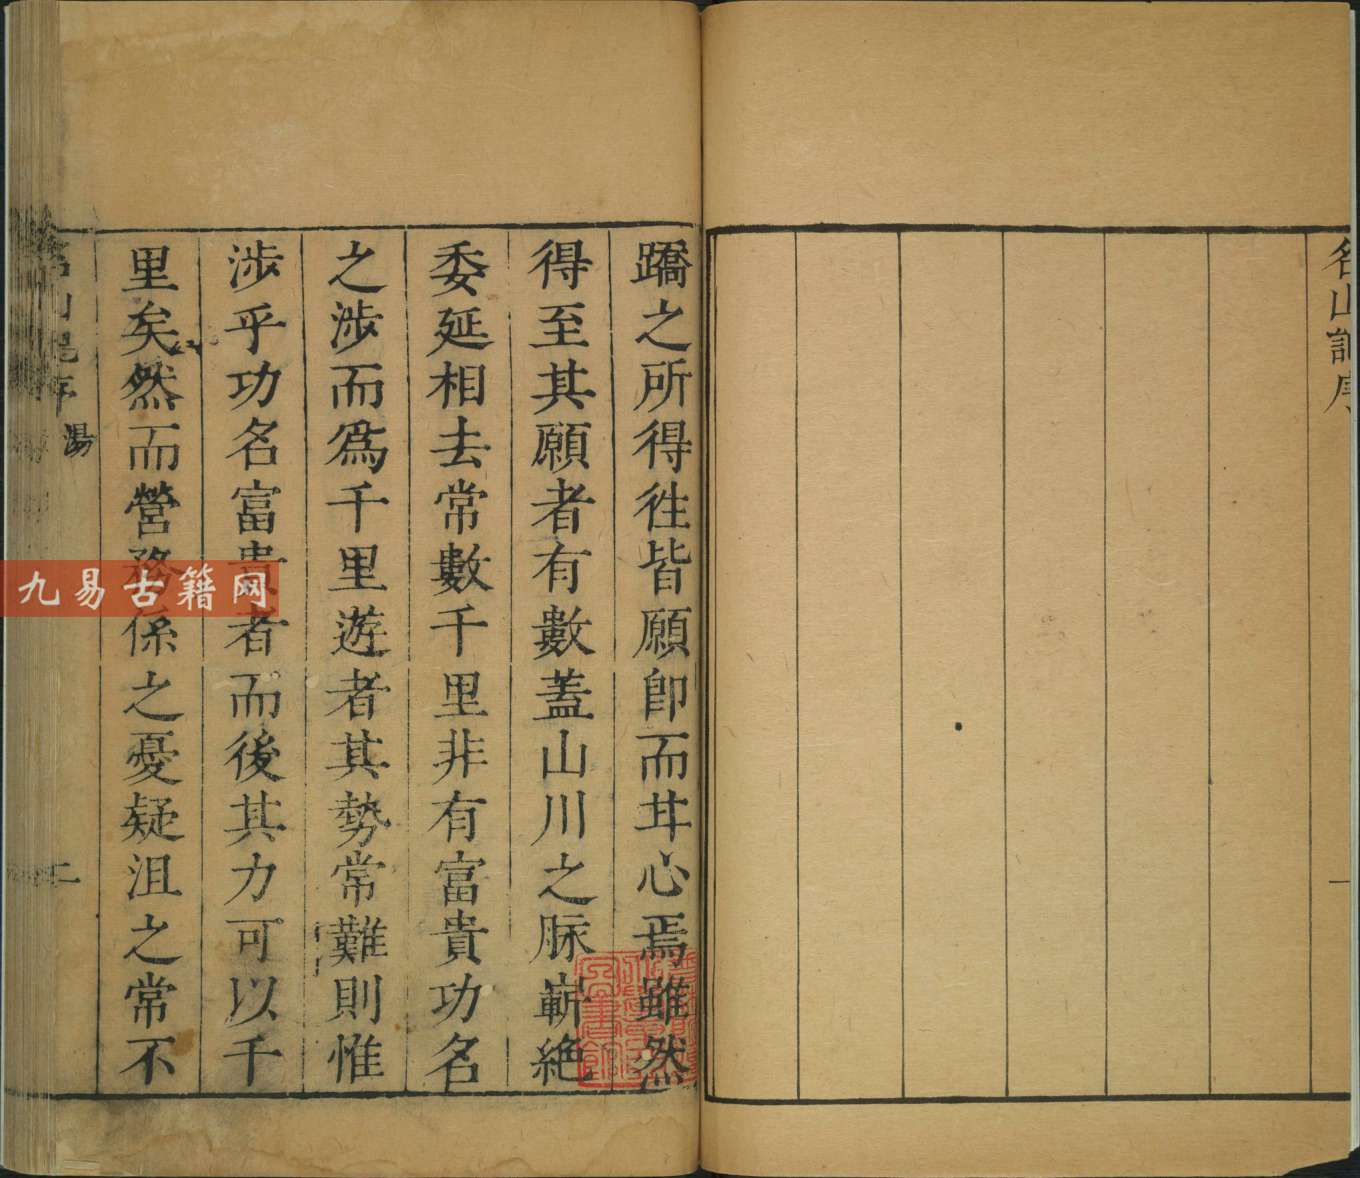 名山記序
一
蹻之所得徃皆願卽而甘心焉雖然
得至其願者有數蓋山川之脉嶄絶
委延相去常數千里非有富貴功名
之涉而爲千里遊者其勢常難則惟
涉乎功名富貴者而後其力可以千
里矣然而營務係之憂疑沮之常不
名山記序
湯
二
九易古籍网